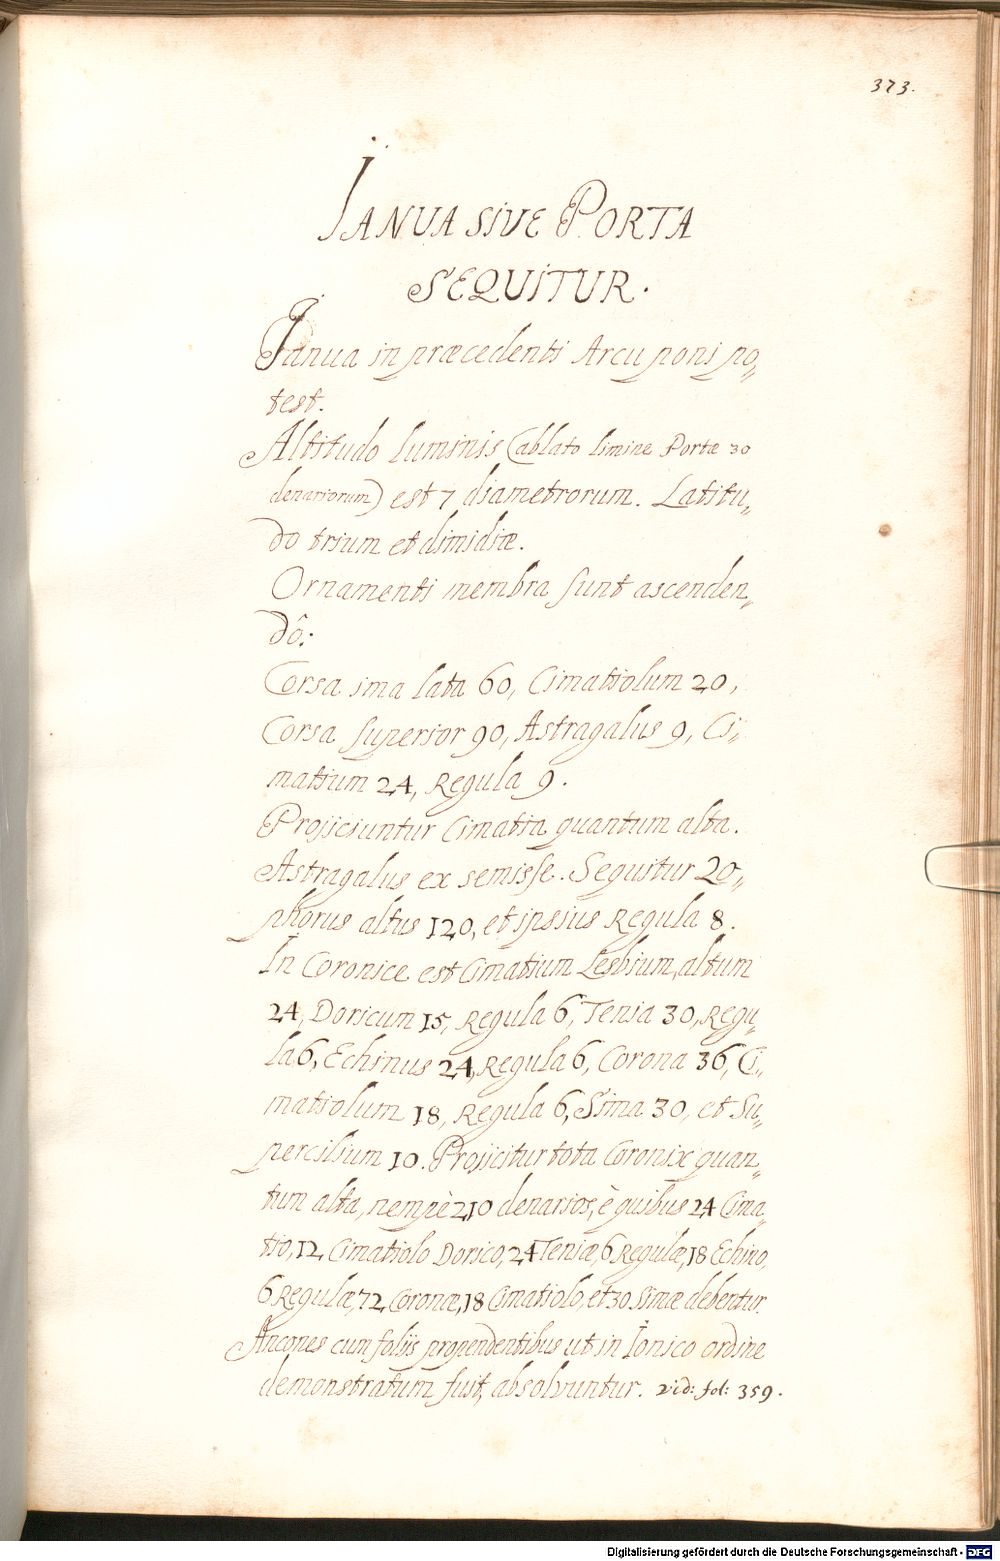 373.
IANUA SIVE PORTA
SEQUITUR.
Janua in præcedenti Arcu poni po„
test.
Altitudo luminis (ablato limine Portæ 30
denariorum) est 7 diametrorum. Latitu„
do trium et dimidiæ.
Ornamenti membra sunt ascenden„
dô:
Corsa ima lata 60, Cimatiolum 20,
Corsa superior 90, Astragalus 9, Ci„
matium 24, Regula 9.
Projiciuntur Cimatia quantum alta.
Astragalus ex semisse. Sequitur Zo„
phorus altus 120, et ipsius Regula 8.
In Coronice est Cimatium Lesbium, altum
24, Doricum 15, Regula 6, Tenia 30, Regu„
la 6, Echinus 24, Regula 6, Corona 36, Ci„
matiolum 18, Regula 6, Sima 30, et Su„
percilium 10. Projicitur tota Coronix quan„
tum alta, nempè 210 denarios, è quibus 24 Cima„
tio, 12 Cimatiolo Dorico, 24 Teniæ, 6 Regulæ, 18 Echino,
6 Regulæ, 72 Coronæ, 18 Cimatiolo, et 30 Simæ debentur.
Ancones cum folijs propendentibus ut in Ionico ordine
demonstratum fuit, absolvuntur. vid: fol: 359.
Digitalisierung gefördert durch die Deutsche Forschungsgemeinschaft - DFG